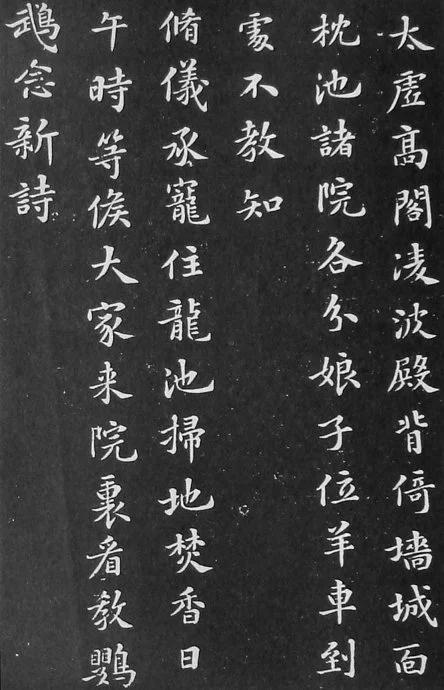 太虛髙閣凌波殿背倚墻城面
枕池諸院各分娘子位羊車到
處不教知
脩儀承寵住龍池掃地焚香日
午時等候大家来院裏看教鸚
鵡念新詩